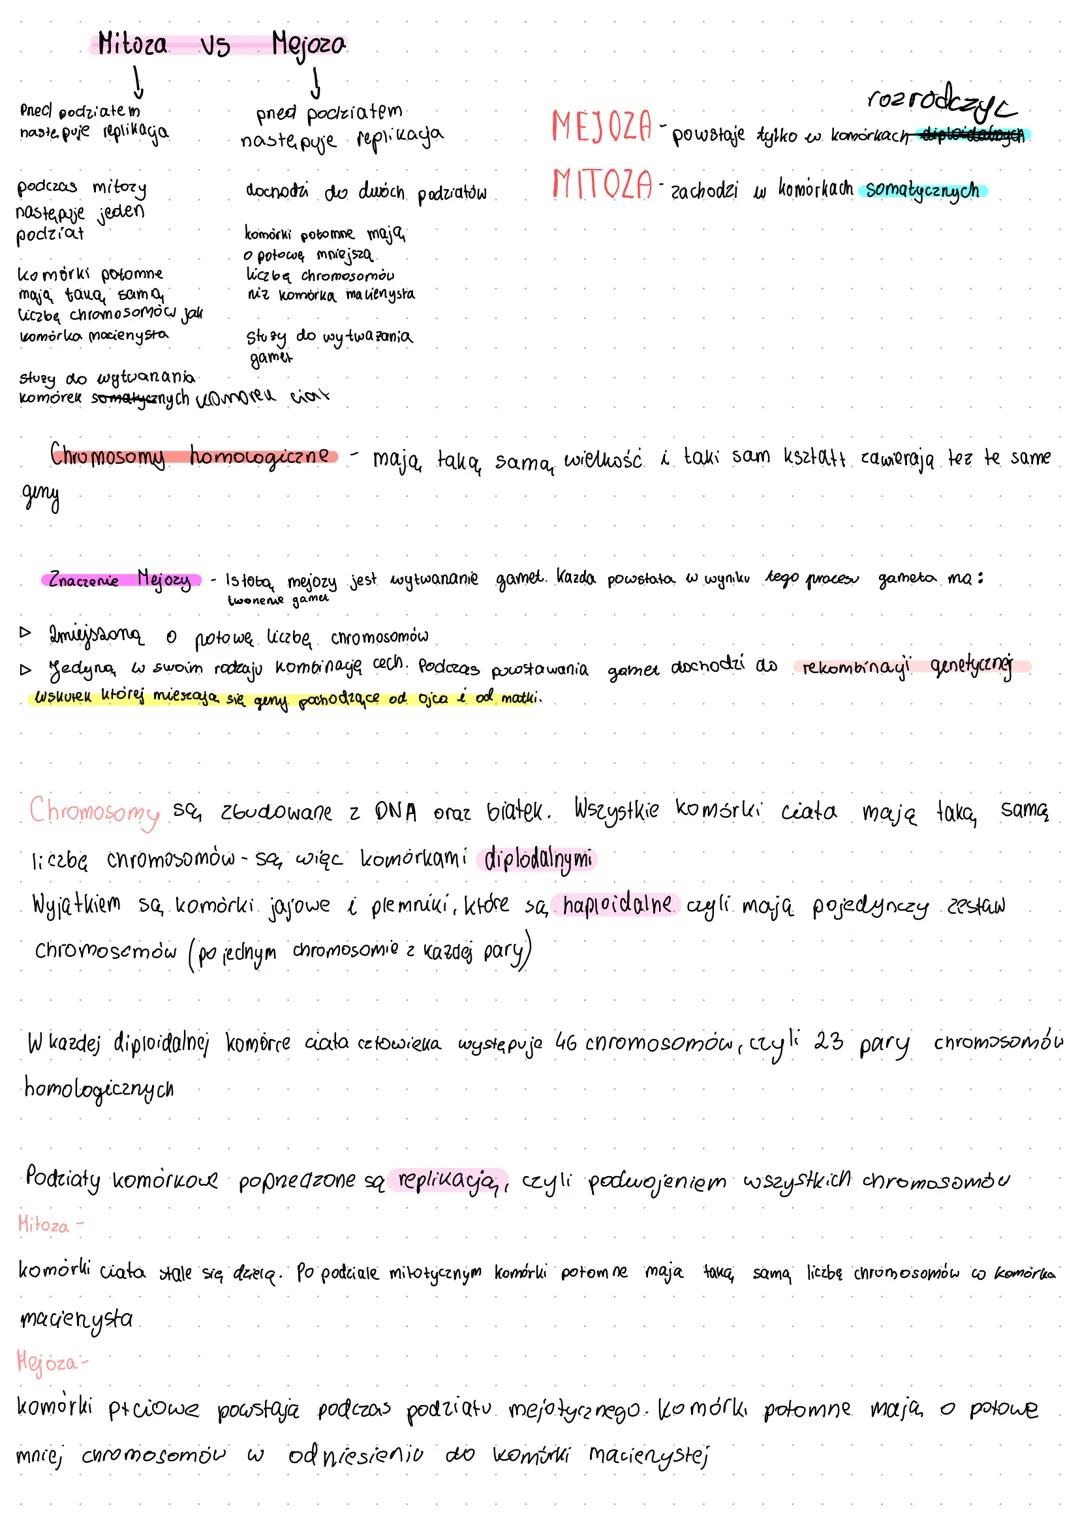 Mitoza vs Mejoza
Przed podziałem
następuje replikacja
podczas mitozy
następuje jeden
podział
komórki potomne
mają taką samą
liczbę chromosomów jak
komórka macierzysta
służy do wytwarzania
komórek somatycznych komórek ciał
przed podziałem
następuje replikacja
dochodzi do dwóch podziałów
komórki potomne mają
o połowę mniejszą
liczbę chromosomów
niż komórka macierzysta
służy do wytwazania
gamet
rozrodczyc
MEJOZA - powstaje tylko w komórkach diploidalnych
MITOZA - zachodzi w komórkach somatycznych
Chromosomy homologiczne - mają taką samą wielkość i taki sam kształt zawierają też te same
geny
Znaczenie Mejozy - Istotą mejozy jest wytwarzanie gamet. Każda powstała w wyniku tego procesu gameta ma:
tworzenie gamet
▷ Zmiejszoną o połowę liczbę chromosomów
▷ Jedyną w swoim rodzaju kombinację cech. Podczas powstawania gamet dochodzi do rekombinacji genetycznej
wskutek której mieszają się geny pochodzące od ojca i od matki.
Chromosomy są zbudowane z DNA oraz białek. Wszystkie komórki ciała mają taką samą
liczbę chromosomów - są więc komórkami diplodalnymi
Wyjątkiem są komórki jajowe i plemniki, które są haploidalne czyli mają pojedynczy zestaw
chromosomów (po jednym chromosomie z każdej pary)
W każdej diploidalnej komórce ciała człowieka występuje 46 chromosomów, czyli 23 pary chromosomów
homologicznych
Podziały komórkowe poprzedzone są replikacją, czyli podwojeniem wszystkich chromosomów
Mitoza -
komórki ciała stale się dzielą. Po podziale mitotycznym komórki potomne maja taką samą liczbę chromosomów co komórka
macierzysta
Mejoza -
komórki płciowe powstają podczas podziału mejotycznego. Komórki potomne mają o połowe
mniej chromosomów w odniesieniu do komórki macierzystej